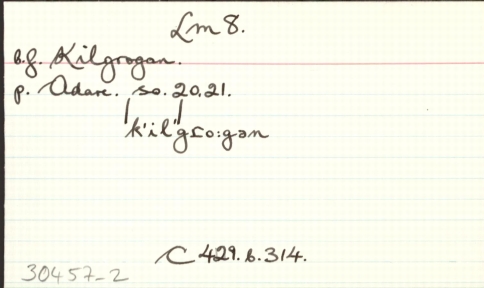 Lm 8.
b.f. Kilgrogan.
p. Adare. so. 20.21.
ˈk'ilˈgro:gən
C 429.b.314.
30457-2